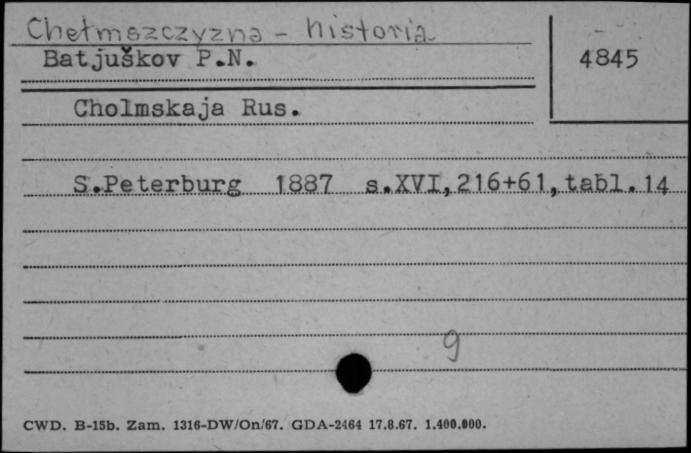 Chełmszczyzna - historia
Batjuškov P.N.
4845
Cholmskaja Rus.
S.Peterburg 1887 s.XVI,216+61,tabl.14
9
CWD. B-15b. Zam. 1316-DW/On/67. GDA-2464 17.8.67. 1.400.000.